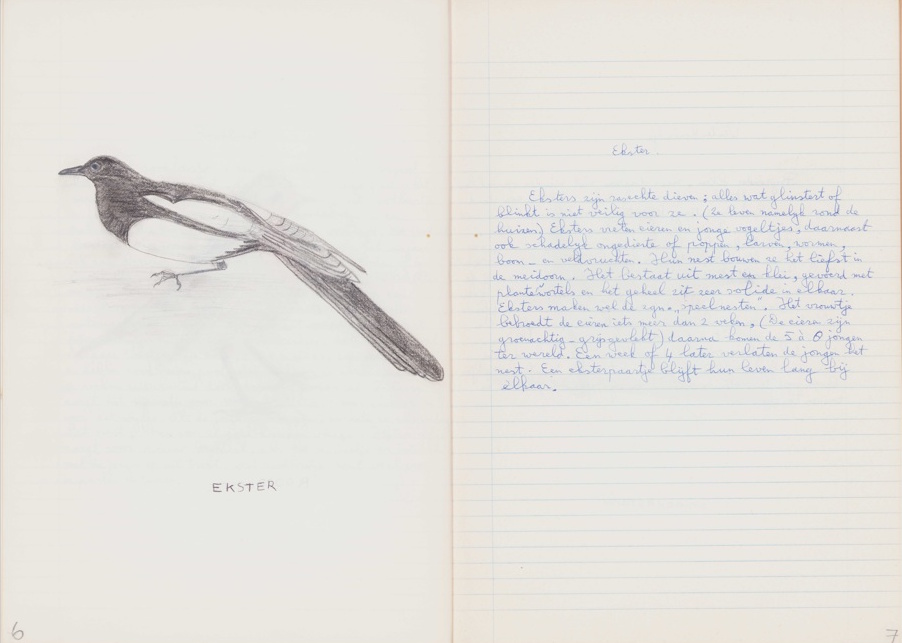 EKSTER
6
Ekster.
Eksters zijn rasechte dieven; alles wat glinstert of
blinkt is niet veilig voor ze. (Ze leven namelijk rond de
huizen) Eksters vreten eieren en jonge vogeltjes, daarnaast
ook schadelijk ongedierte of poppen, larven, wormen,
boon- en veldvruchten. Hun nest bouwen ze het liefst in
de meidoorn. Het bestaat uit mest en klei, gevoerd met
plantewortels en het geheel zit zeer solide in elkaar.
Eksters maken wel de zgn. "speelnesten". Het vrouwtje
bebroedt de eieren iets meer dan 2 weken, (De eieren zijn
groenachtig - grijsgevlekt) daarna komen de 5 à 8 jongen
ter wereld. Een week of 4 later verlaten de jongen het
nest. Een eksterpaartje blijft hun leven lang bij
elkaar.
7